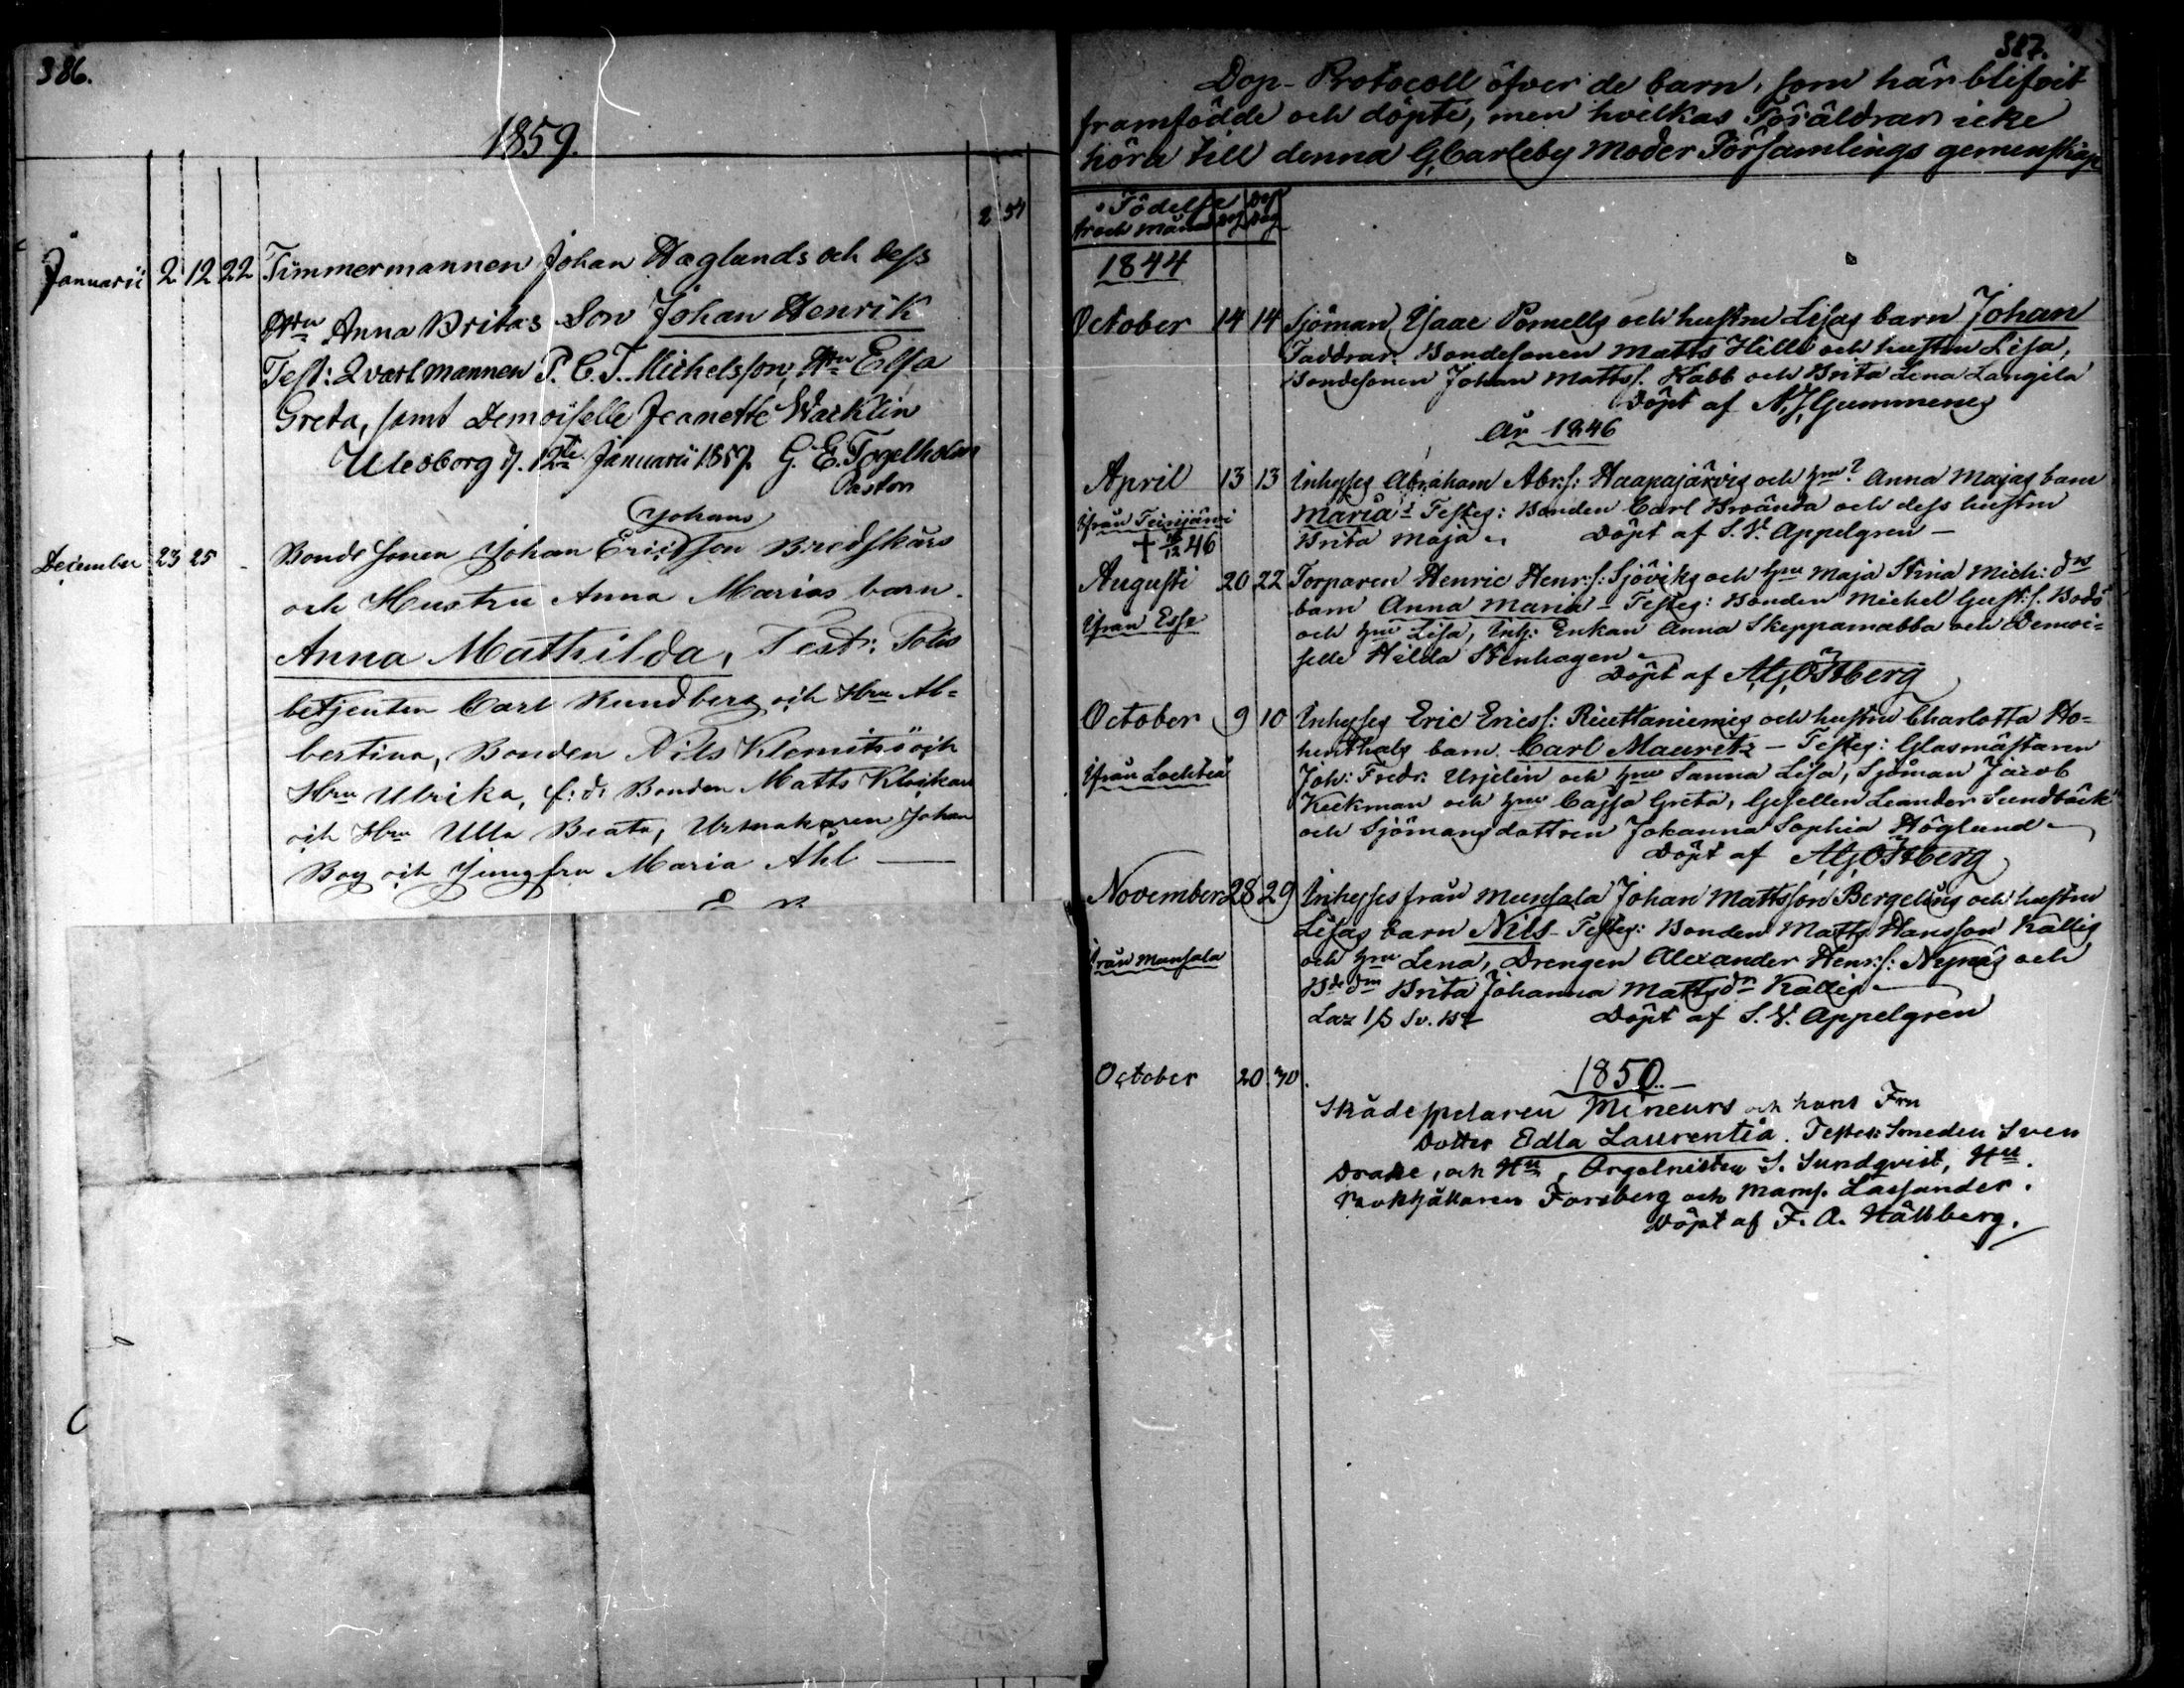 386.
1859.
2 54
Januarii 2 12 22 Timmermannen Johan Haglunds och dess
Hru Anna Britas Son Johan Henrik
Test: Qvartmannen P. C. J. Michelsson, Hru Elsa
Greta, samt Demoiselle Jeanette Wacklin
Uleåborg d. 12te Januarii 1859. G. E. Fogelholm
Pastor
Johans
December 23 25 Bonde Sonen Johan Ericsson Bredskärs
och Hustru Anna Marias barn.
Anna Mathilda, Test: Polis
betjenten Carl Rundberg och Hru Al=
bertina, Bonden Nils Klemitsö och
Hru Ulrika, f: d: Bonden Matts Klockars
och Hru Ulla Beata, Urmakaren Johan
Boy och Jungfru Maria Åhl
387.
Dop-Protocoll öfver de barn, som här blifvit
framfödde och döpte, men hvilkas Föräldrar icke
höra till denna G.Carleby Moder Församlings gemenskap
Födelse Dop
år och månad dag dag
1844
October 14 14 Sjöman Isaac Pomells och hustru Lisas barn Johan
Faddrar: Bondesonen Matts Hilli och hustru Lisa,
Bondesonen Johan Mattss. Kabb och Brita Lena Langila
Döpt af N. J. Gummerus
År 1846
April 13 13 Inhyses Abraham Abr:s: Haapajärvis och hru? Anna Majas barn
ifrån Teirijärvi Maria - Testes: Bonden Carl Brända och dess hustru
† 16/12 46 Brita Maja. Döpt af S. V. Appelgren -
Augusti 20 22 Torparen Henric Henr:s: Sjöviks och hru Maja Stina Mich: drs
barn Anna Maria - Testes: Bonden Michel Gust:s. Bodö
ifrån Esse och hru Lisa, Inh: Enkan Anna Skepparnabba och Demoi=
selle Hilda Stenhagen
Döpt af A. G. Östberg
October 9 10 Inhyses Eric Ericss: Riuttaniemis och hustru Charlotta Ho=
henthals barn Carl Mauritz - Testes: Glasmästaren
ifrån Lochteå Joh: Fredr: Urjelin och hru Sanna Lisa, Sjöman Jacob
Keckman och hru Cajsa Greta, Gesellen Leander Sundbäck
och Sjömans dottren Johanna Sophia Höglund
Döpt af A. G. Östberg
November 28 29 Inhyses från Munsala Johan Mattsson Bergelins och hustru
Lisas barn Nils - Testes: Bonden Matts Hansson Kallis
ifrån Munsala och hru Lena, Drengen Alexander Henr:s: Nynäs och
Bde dm Brita Johanna Mattsdr Kallis
Döpt af S. V. Appelgren
1850. -
October 20 30. Skådespelaren Mineurs och hans Fru
Dotter Edla Laurentia. Testes: Smeden Sven
Drake, och Hu, Orgelnisten S. Sundqvist, Hu.
Bokhållaren Forsberg och Mams. Lassander.
Döpt af F. A. Hällberg.